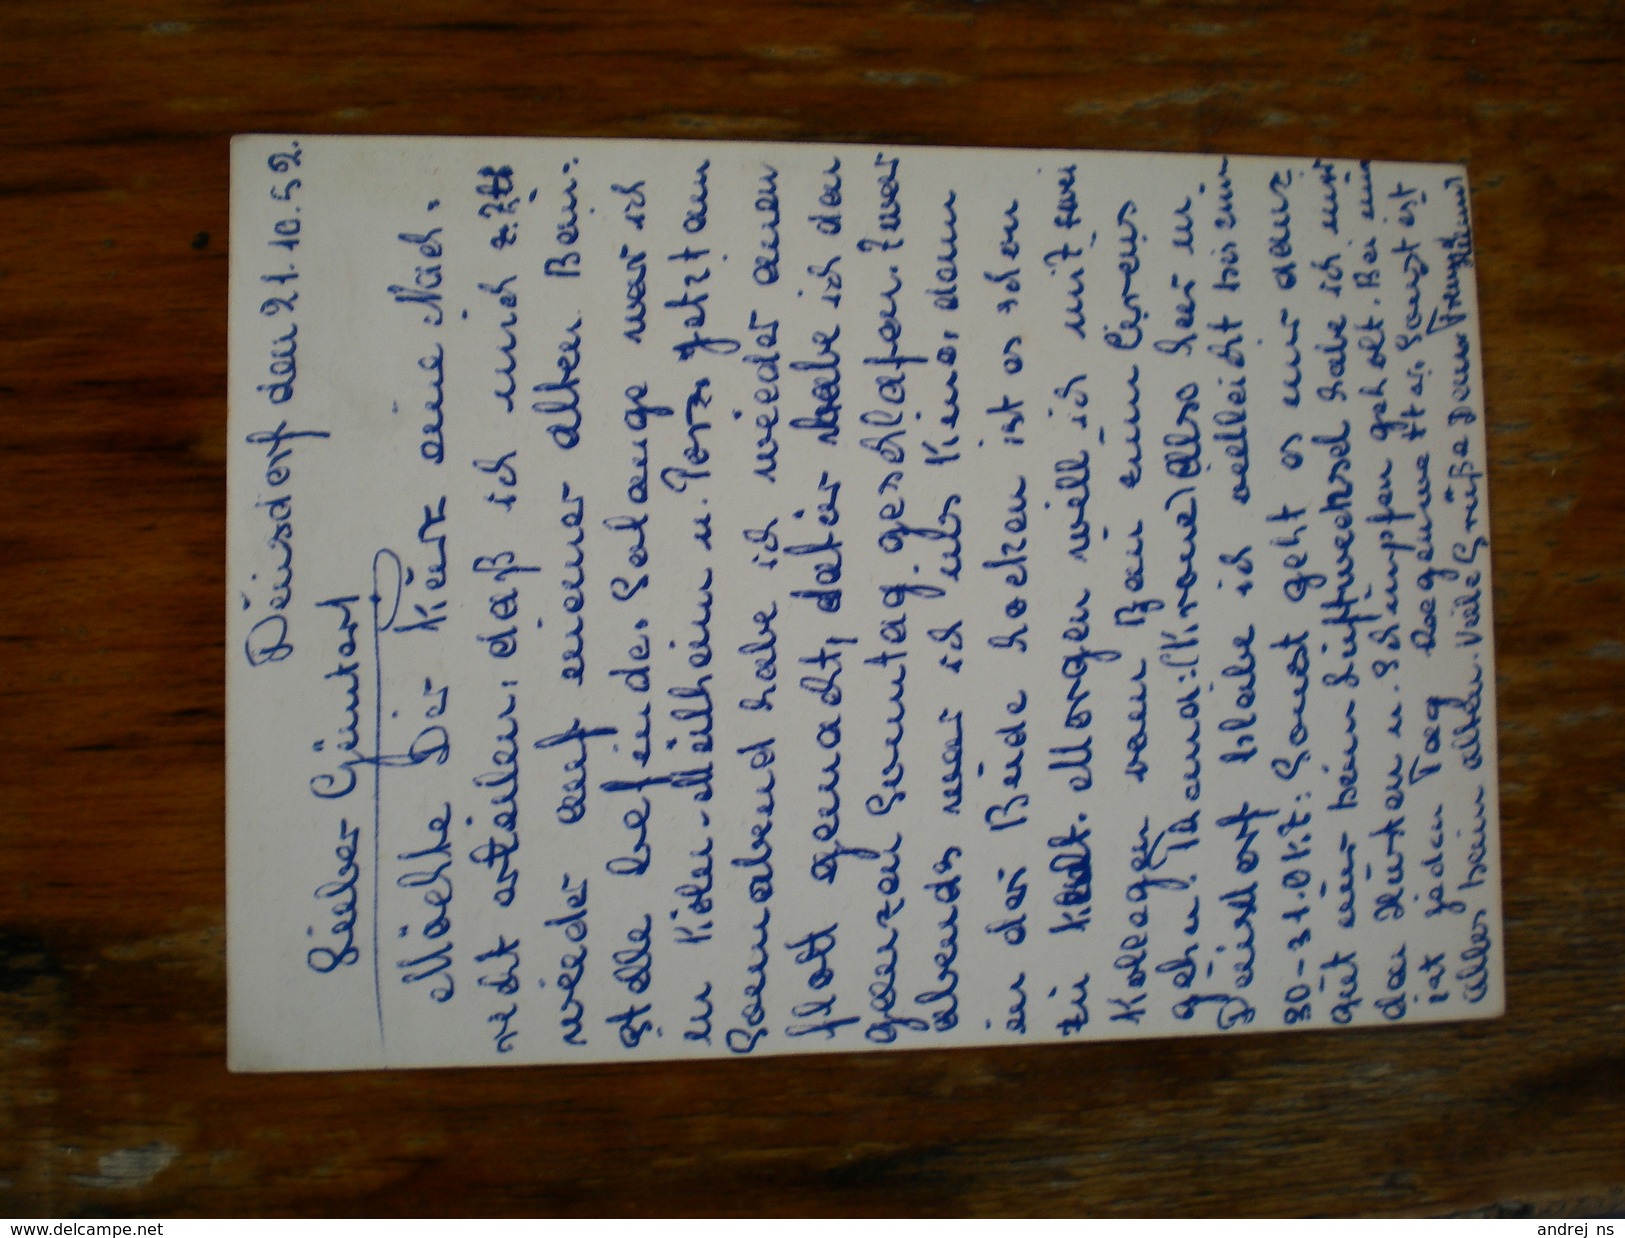 Deinsdorf den 21.10.52.
Lieber Günter!
Möchte Dir Kurz eine Näch-
richt erteilen, daß ich mich z. Zt.
wieder auf meiner alten Bau-
stelle befinde. Solange war ich
in Köln-Mülheim u. Porz jetzt am
Sonnabend habe ich wieder einen
flott gemacht, dafür habe ich den
ganzen Sonntag geschlafen. Zwar
abends war ich ins Kino, denn
in der Bude hocken ist es schon
zu kalt. Morgen will ich mit zwei
Kollegen vom Bau zum Circus
gehn. Also hier in
Deinsdorf bleibe ich velleicht bis zum
30-31.Okt: Sonst geht es mir ganz
gut nur beim Luftwechsel habe ich mir
den Husten u. Schnupfen geholt. Bei uns
ist jeden Tag Regenwetter, Sonst ist
alles beim alten. Viele Grüße Dein Freund